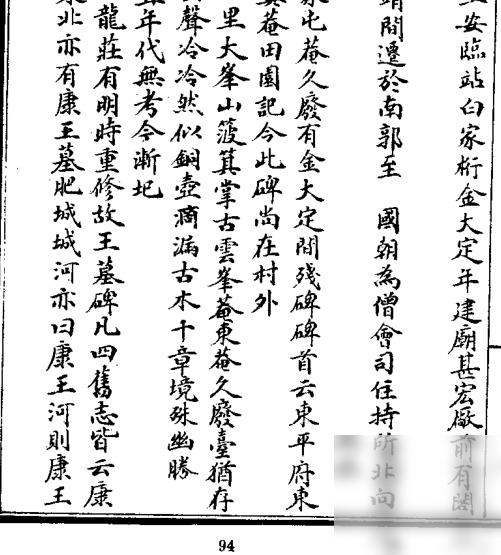 安臨站白家桁金大定年建廟甚宏厰前有閣
靖間遷於南郭至 國朝為僧會司住持所北向
屯菴久廢有金大定間殘碑碑首云東平府東
菴田園記今此碑尚在村外
里大峯山菠箕掌古雲峯菴東菴久廢臺猶存
聲冷冷然似銅壺滴漏古木千章境殊幽勝
年代無考今漸圯
龍莊有明時重修故王墓碑凡四舊志皆云康
北亦有康王墓肥城城河亦曰康王河則康王
94